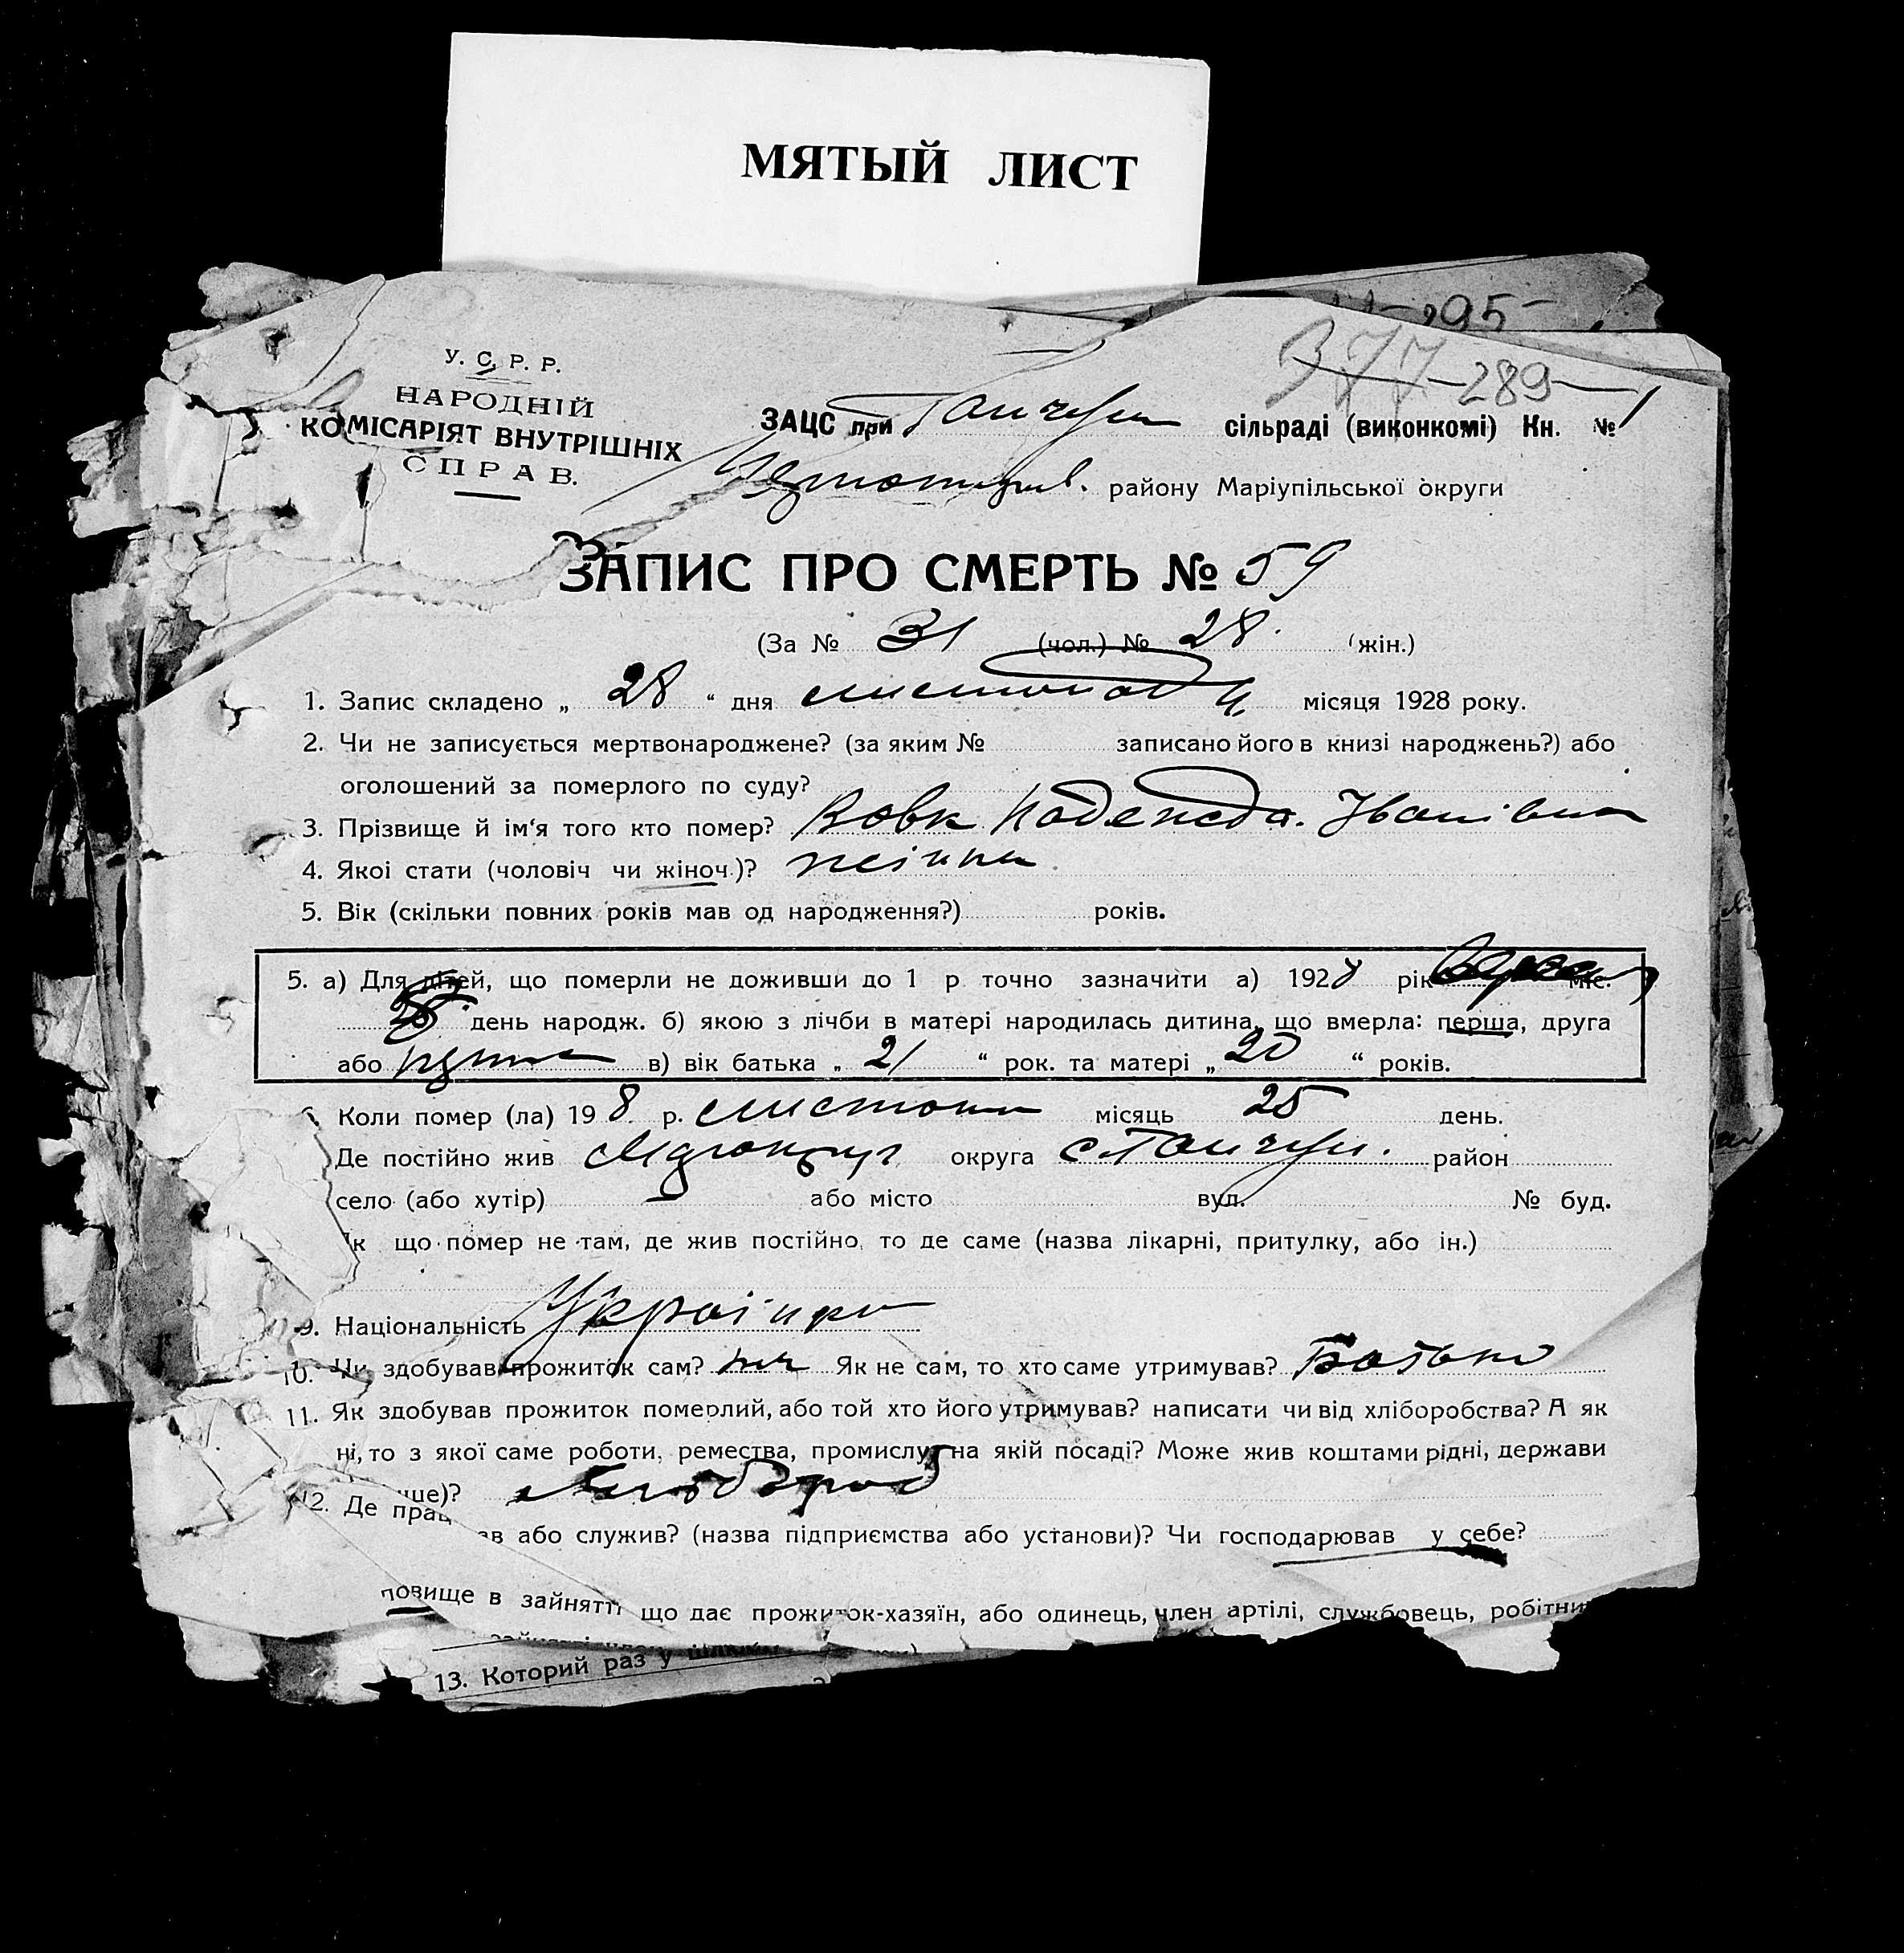 МЯТЫЙ ЛИСТ
295-
377-289-
У. С. Р. Р.
НАРОДНІЙ
КОМІСАРІЯТ ВНУТРІШНІХ
СПРАВ.
ЗАЦС при сільраді (виконкомі) Кн. № 1
району Маріупільської округи
ЗАПИС ПРО СМЕРТЬ № 59
(За № 31 (чол.) № 28. (жін.)
1. Запис складено „ 28 “ дня листопада місяця 1928 року.
2. Чи не записується мертвонароджене? (за яким № записано його в книзі народжень?) або
оголошений за померлого по суду?
3. Прізвище й ім‘я того кто помер? Вовк Надежда. Іванівна
4. Якоі стати (чоловіч чи жіноч.)? жінка
5. Вік (скільки повних років мав од народження?) років.
5. а) Для дітей, що померли не доживши до 1 р точно зазначити а) 1928 рік міс.
день народж. б) якою з лічби в матері народилась дитина, що вмерла: перша, друга
або в) вік батька „ 21 “ рок. та матері „ 20 “ років.
Коли помер (ла) 19 8 р. листопа місяць 25 день.
Де постійно жив округа район
село (або хутір) або місто вул. № буд.
к що помер не там, де жив постійно, то де саме (назва лікарні, притулку, або ін.)
9. Національність Українка
10. Чи здобував прожиток сам? ні Як не сам, то хто саме утримував? Батько
11. Як здобував прожиток померлий, або той хто його утримував? написати чи від хліборобства? А як
ні, то з якої саме роботи, ремества, промислу, на якій посаді? Може жив коштами рідні, держави
ше)? Хлібороб
12. Де прац
в або служив? (назва підприємства або установи)? Чи господарював у себе?
повище в зайнятті що дає прожиток-хазяїн, або одинець, член артілі, службовець, робітни
13. Которий раз у